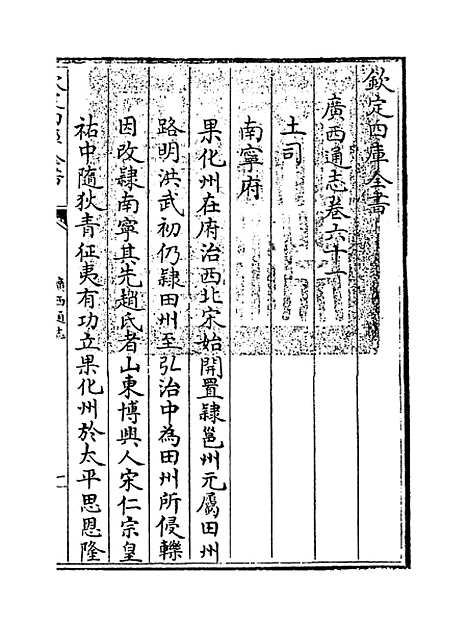 欽定四庫全書
廣西通志卷六十一
土司
南寧府
果化州在府治西北宋始開置隸邕州元屬田州
路明洪武初仍隸田州至弘治中為田州所侵轢
因改隸南寧其先趙氏者山東博興人宋仁宗皇
祐中隨狄青征夷有功立果化州於太平思恩隆
廣西通志